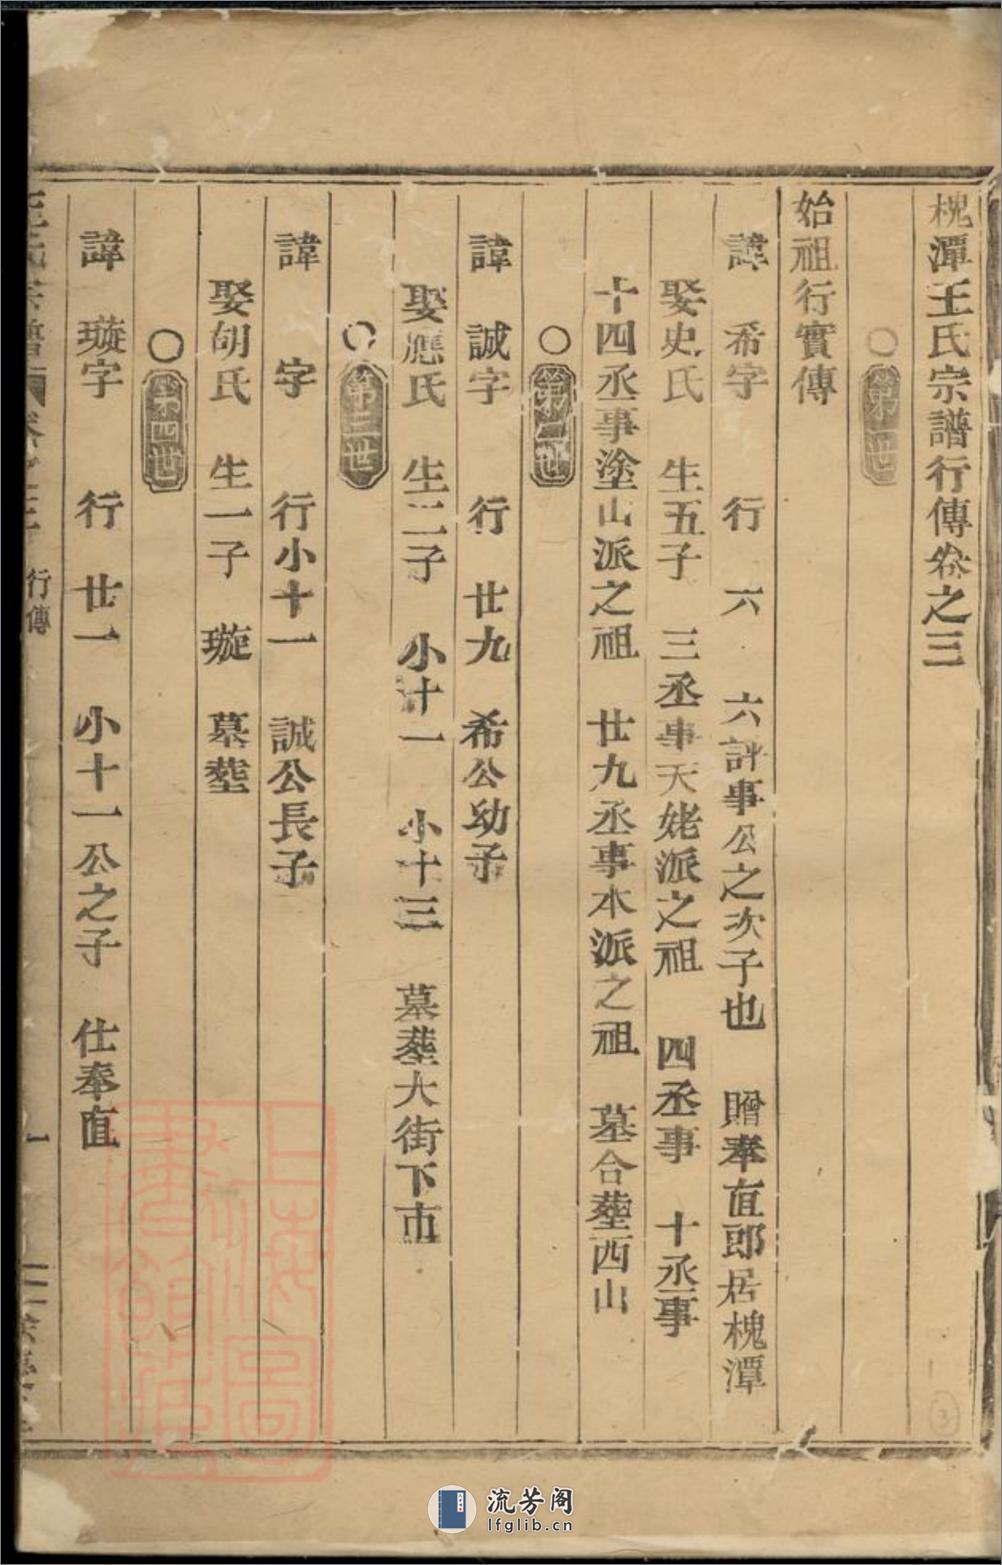 槐潭王氏宗譜行傳卷之三
○第一世
始祖行實傳
諱 希字 行 六 六評事公之次子也 贈奉直郎居槐潭
娶史氏 生五子 三丞事天姥派之祖 四丞事 十丞事
十四丞事塗山派之祖 廿九丞事本派之祖 墓合塟西山
○第二世
諱 誠字 行 廿九 希公幼子
娶應氏 生二子 小十一 小十三 墓塟大街下市
○第三世
諱 字 行小十一 誠公長子
娶胡氏 生一子 璇 墓塟
○第四世
諱 璇字 行 廿一 小十一公之子 仕奉直
王氏宗譜 卷之三 行傳 一
上海圖書館藏
3
流芳阁
lfglib.cn